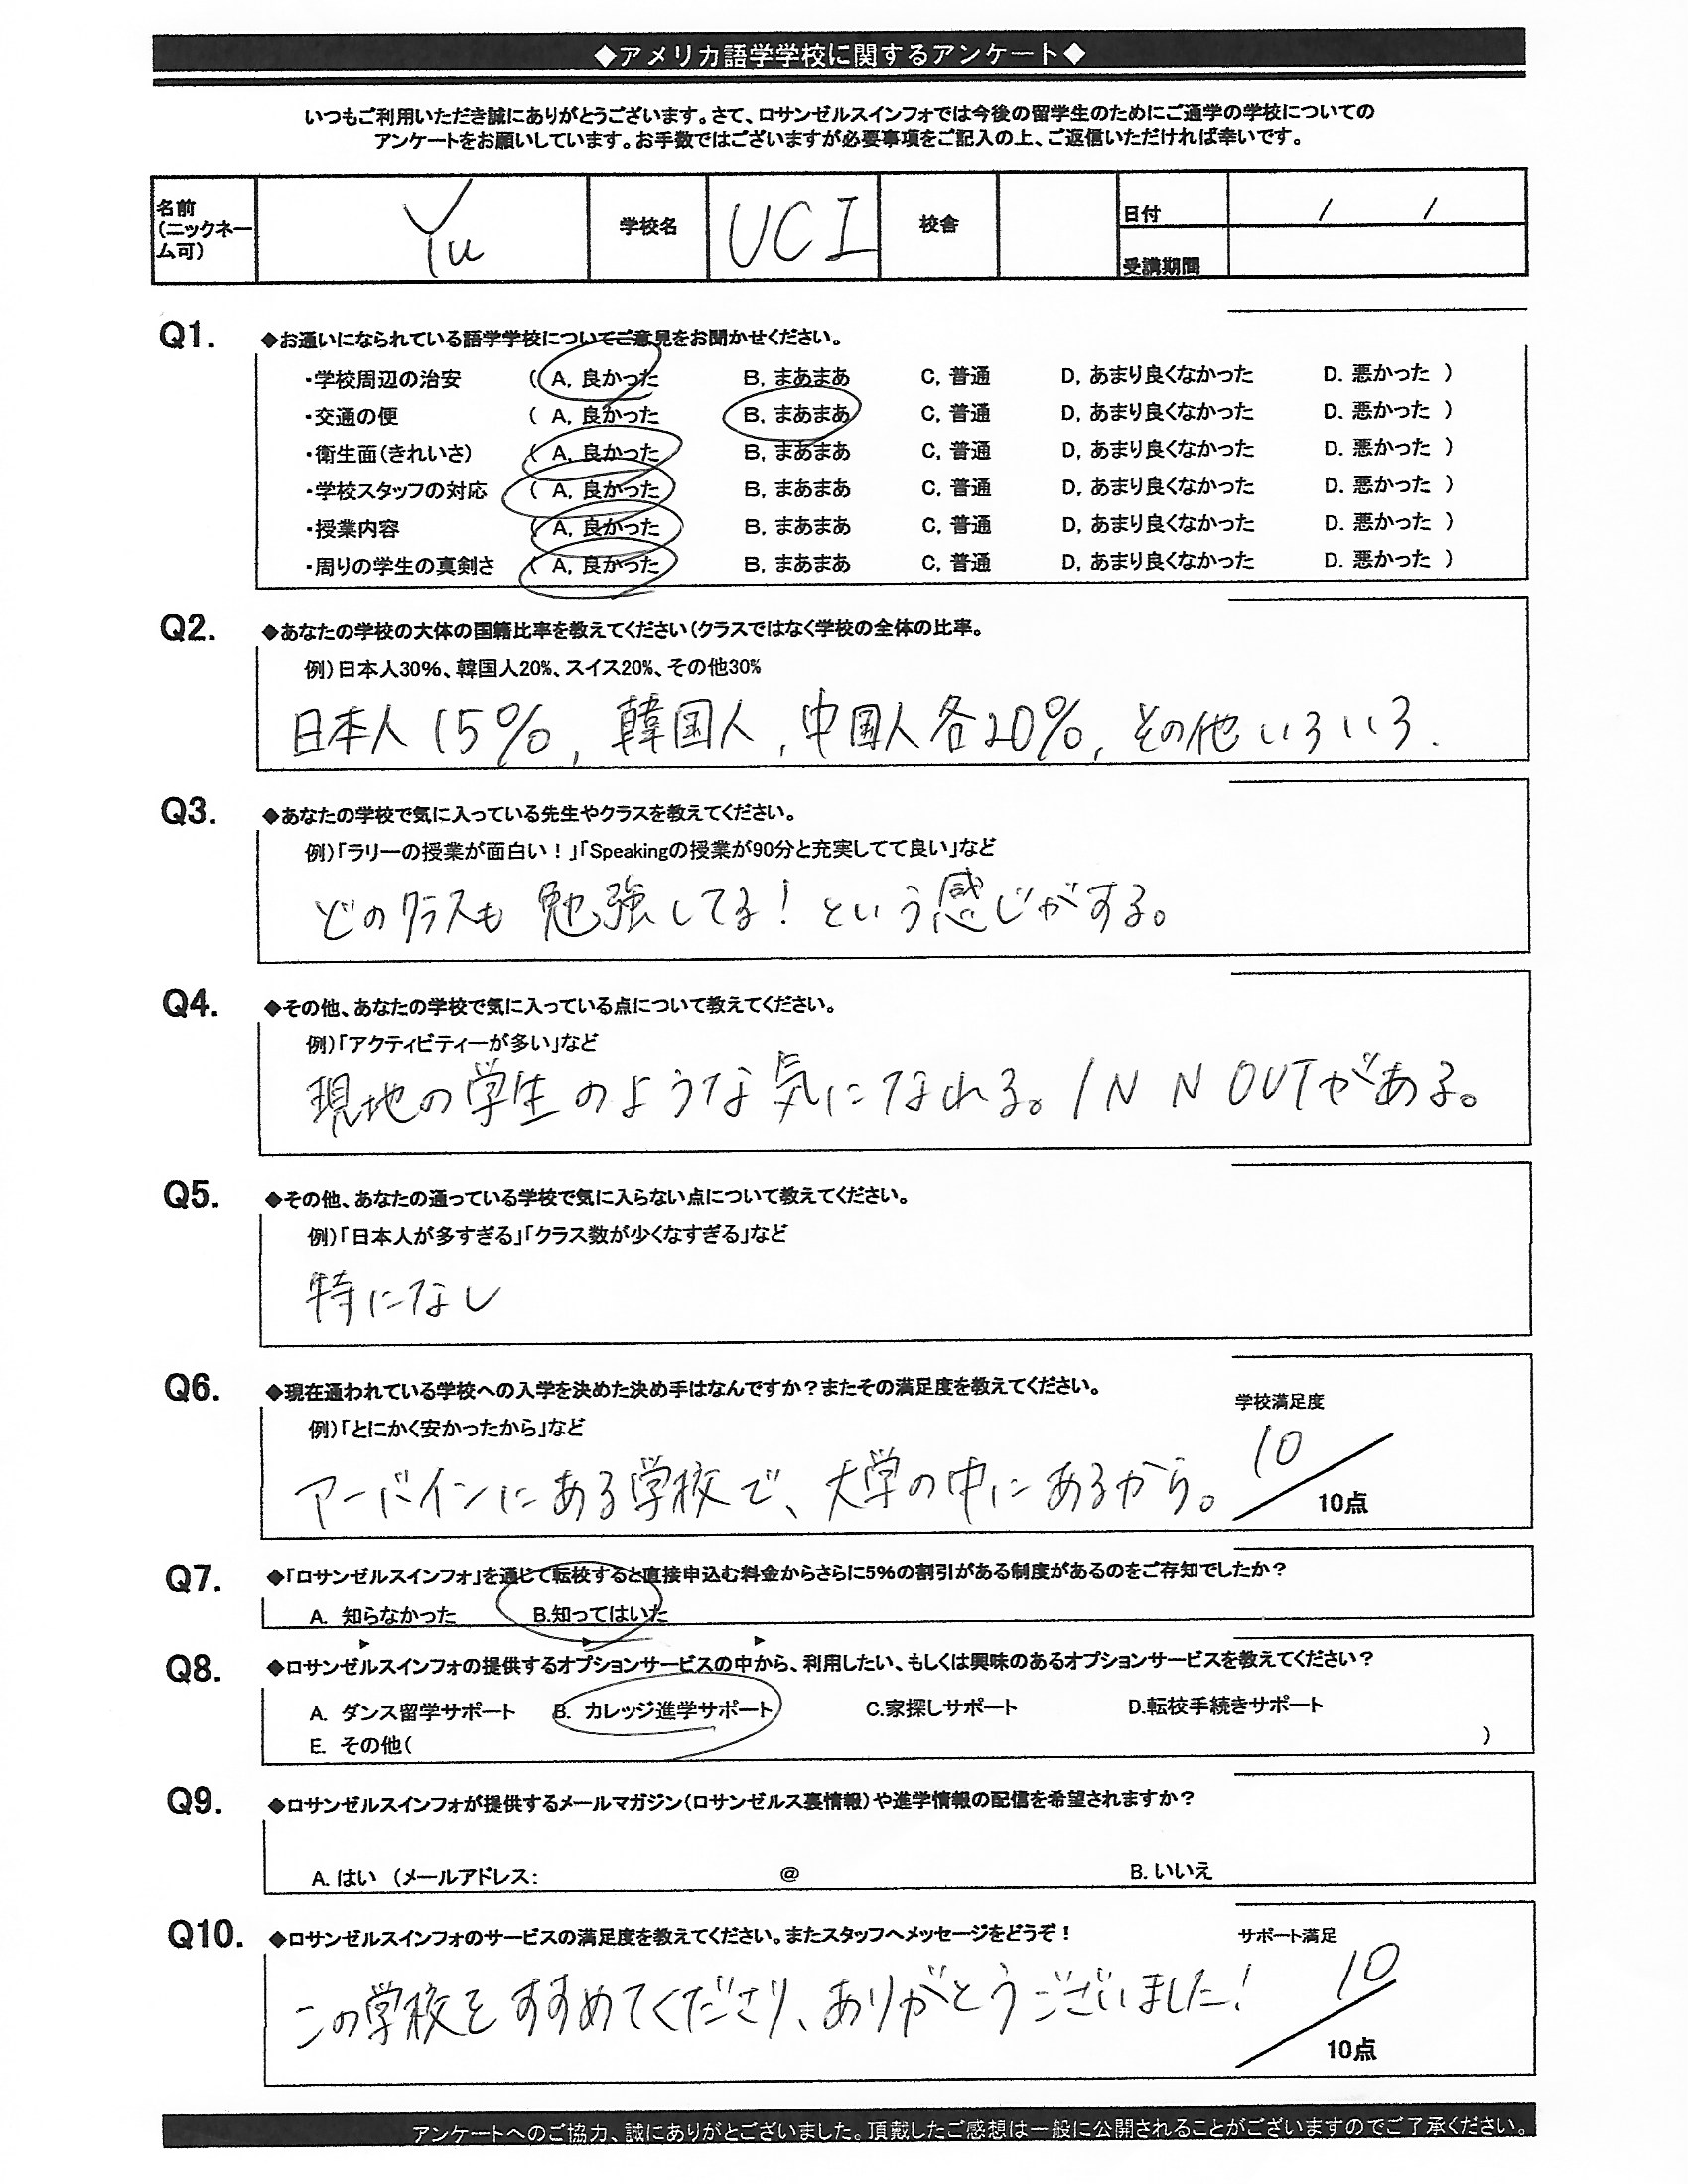 ◆アメリカ語学学校に関するアンケート◆
いつもご利用いただき誠にありがとうございます。さて、ロサンゼルスインフォでは今後の留学生のためにご通学の学校についての
アンケートをお願いしています。お手数ではございますが必要事項をご記入の上、ご返信いただければ幸いです。
名前(ニックネーム可) Yu 学校名 UCI 校舎 日付 / /
受講期間
Q1. ◆お通いになられている語学学校についてご意見をお聞かせください。
・学校周辺の治安 ( A, 良かった B, まあまあ C, 普通 D, あまり良くなかった D. 悪かった )
・交通の便 ( A, 良かった B, まあまあ C, 普通 D, あまり良くなかった D. 悪かった )
・衛生面(きれいさ) ( A, 良かった B, まあまあ C, 普通 D, あまり良くなかった D. 悪かった )
・学校スタッフの対応 ( A, 良かった B, まあまあ C, 普通 D, あまり良くなかった D. 悪かった )
・授業内容 ( A, 良かった B, まあまあ C, 普通 D, あまり良くなかった D. 悪かった )
・周りの学生の真剣さ ( A, 良かった B, まあまあ C, 普通 D, あまり良くなかった D. 悪かった )
Q2. ◆あなたの学校の大体の国籍比率を教えてください(クラスではなく学校の全体の比率。
例)日本人30%、韓国人20%、スイス20%、その他30%
日本人15%, 韓国人, 中国人各20%, その他いろいろ.
Q3. ◆あなたの学校で気に入っている先生やクラスを教えてください。
例)「ラリーの授業が面白い！」「Speakingの授業が90分と充実してて良い」など
どのクラスも勉強してる！という感じがする。
Q4. ◆その他、あなたの学校で気に入っている点について教えてください。
例)「アクティビティーが多い」など
現地の学生のような気になれる。IN N OUTがある。
Q5. ◆その他、あなたの通っている学校で気に入らない点について教えてください。
例)「日本人が多すぎる」「クラス数が少くなすぎる」など
特になし
Q6. ◆現在通われている学校への入学を決めた決め手はなんですか？またその満足度を教えてください。
学校満足度
例)「とにかく安かったから」など
アーバインにある学校で、大学の中にあるから。 10/10点
Q7. ◆「ロサンゼルスインフォ」を通じて転校すると直接申込む料金からさらに5%の割引がある制度があるのをご存知でしたか？
A. 知らなかった B.知ってはいた
Q8. ◆ロサンゼルスインフォの提供するオプションサービスの中から、利用したい、もしくは興味のあるオプションサービスを教えてください？
A. ダンス留学サポート B. カレッジ進学サポート C.家探しサポート D.転校手続きサポート
E. その他( )
Q9. ◆ロサンゼルスインフォが提供するメールマガジン(ロサンゼルス裏情報)や進学情報の配信を希望されますか？
A. はい (メールアドレス: @ B. いいえ
Q10. ◆ロサンゼルスインフォのサービスの満足度を教えてください。またスタッフへメッセージをどうぞ！
サポート満足
この学校をすすめてくださり、ありがとうございました！ 10/10点
アンケートへのご協力、誠にありがとございました。頂戴したご感想は一般に公開されることがございますのでご了承ください。